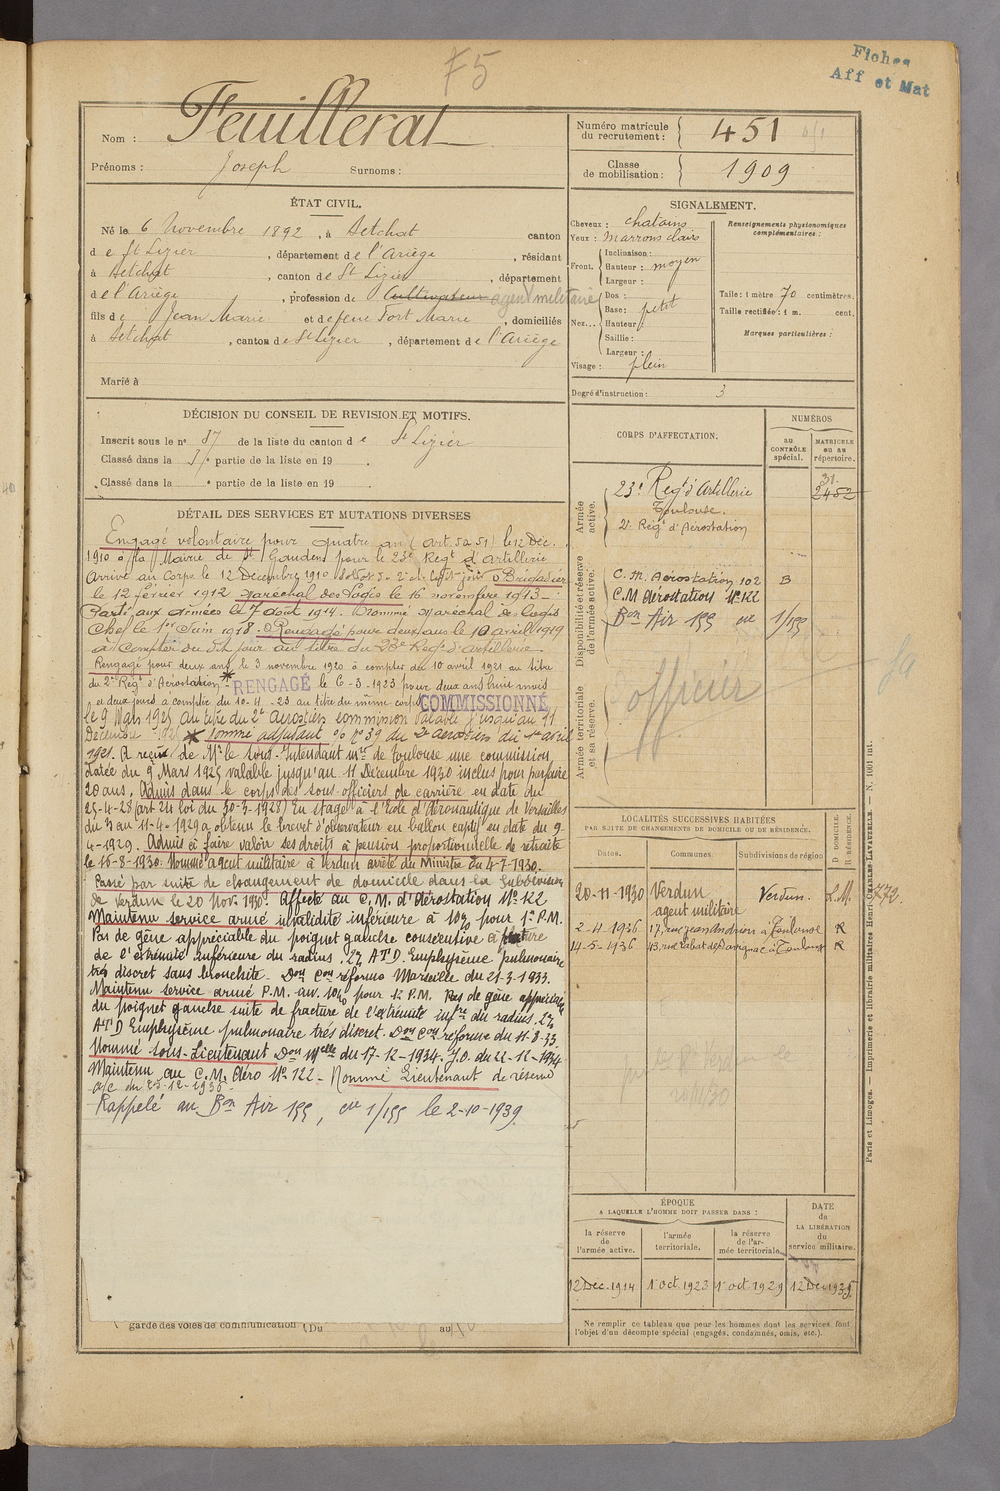 F5
Fiches
Aff et Mat
Nom : Feuillerat
Prénoms : Joseph Surnoms :
Numéro matricule du recrutement : 451
Classe de mobilisation : 1909
ÉTAT CIVIL.
Né le 6 Novembre 1892, à Betchat canton
d e St Lizier, département de l'Ariège, résidant
à Betchat, canton de St Lizier, département
de l'Ariège, profession de Cultivateur agent militaire
fils de Jean Marie et de feue Fort Marie, domiciliés
à Betchat, canton de St Lizier, département de l'Ariège
Marié à
SIGNALEMENT.
Cheveux : chatains
Yeux : marrons clairs
Front. Inclinaison :
Hauteur : moyen
Largeur :
Nez... Dos :
Base : petit
Hauteur
Saillie :
Largeur :
Visage : plein
Renseignements physionomiques complémentaires :
Taille : 1 mètre 70 centimètres.
Taille rectifiée : 1 m. cent.
Marques particulières :
Degré d'instruction : 3
DÉCISION DU CONSEIL DE REVISION ET MOTIFS.
Inscrit sous le n° 87 de la liste du canton d e St Lizier
Classé dans la partie de la liste en 19 .
Classé dans la partie de la liste en 19 .
DÉTAIL DES SERVICES ET MUTATIONS DIVERSES
Engagé volontaire pour quatre an (art. 50 51) le 12 Déc.
1910 à la Mairie de St Gaudens pour le 23e Regt d'Artillerie
Arrivé au Corps le 12 Décembre 1910 Brigadier
le 12 février 1912 Maréchal des Logis le 16 novembre 1913
Parti aux armées le 7 Août 1914. Nommé Maréchal des logis
Chef le 1er Juin 1918. Rengagé pour deux ans le 10 avril 1919
à compter du dit jour au titre du Regt d'Artillerie
Rengagé pour deux ans le 3 novembre 1920 à compter du 10 avril 1921 au titre
du 2e Regt d'Aérostation * RENGAGÉ le 6-3-1923 pour deux ans huit mois
et deux jours à compter du 10-4-23 au titre du même corps COMMISSIONNÉ
le 9 Mars 1925 au titre du 2e Aérostiers commission valable jusqu'au 11
Décembre 192 * Nommé adjudant No 39 du 2e Aérostiers du 1er avril
1921. A reçu de Mr le Sous-Intendant mre de Toulouse une commission
datée du 9 Mars 1925 valable jusqu'au 11 Décembre 1930 inclus pour parfaire
20 ans. Admis dans le corps des sous-officiers de carrière en date du
25-4-28 (art 24 loi du 30-3-1928) En stage à l'Ecole d'Aéronautique de Versailles
du 3 au 11-4-1929 a obtenu le brevet d'observateur en ballon captif en date du 9-
4-1929. Admis à faire valoir ses droits à pension proportionnelle de retraite
le 16-8-1930. Nommé agent militaire à Verdun arrêté du Ministre du 4-7-1930.
Passé par suite de changement de domicile dans la Subdivision
de Verdun le 20 Nov. 1930. Affecté au C.M. d'Aérostation No 122
Maintenu service armé invalidité inférieure à 10% pour 1e P.M.
Pas de gêne appréciable du poignet gauche consécutive à fracture
de l'extrémité inférieure du radius. 2% A T D. Emphysème pulmonaire
très discret sans bronchite. Don Con réforme Marseille du 21-3-1933.
Maintenu service armé P.M. inv. 10% pour 1e P.M. Pas de gêne appréciable
du poignet gauche suite de fracture de l'extrémité infre du radius. 2%
A T D Emphysème pulmonaire très discret. Don Con réforme du 11-8-33.
Nommé sous-Lieutenant Don Melle du 17-12-1934. J.O. du 22-12-1934
Maintenu au C.M. Aéro No 122 - Nommé Lieutenant de réserve
a/c du 25-12-1936
Rappelé au Bon Air 155, cie 1/155 le 2-10-1939.
garde des voies de communication (Du au
CORPS D'AFFECTATION.
NUMÉROS
au CONTRÔLE spécial.
MATRICULE ou au répertoire.
Armée active.
23e Regt d'Artillerie 31. 2452
Toulouse.
2e Regt d'Aérostation
Disponibilité et réserve de l'armée active.
C.M. Aérostation 102 B
C.M Aérostation No 122
Bon Air 155 cie 1/155
Armée territoriale et sa réserve.
officier
LOCALITÉS SUCCESSIVES HABITÉES
PAR SUITE DE CHANGEMENTS DE DOMICILE OU DE RÉSIDENCE.
Dates. Communes. Subdivisions de région D. DOMICILE. R. RÉSIDENCE.
20-11-1930 Verdun Verdun. 772
agent militaire
2-4-1936 17, rue Jean Andrieu à Toulouse R
14-5-1936 43, rue à Toulouse R
ÉPOQUE
A LAQUELLE L'HOMME DOIT PASSER DANS :
la réserve de l'armée active. l'armée territoriale. la réserve de l'armée territoriale.
DATE de LA LIBÉRATION du service militaire.
12 Déc. 1914 1er oct. 1923 1er oct. 1929 12 Déc 1935
Ne remplir ce tableau que pour les hommes dont les services font
l'objet d'un décompte spécial (engagés, condamnés, omis, etc.).
Paris et Limoges. — Imprimerie et librairie militaires Henri CHARLES-LAVAUZELLE. — N. 1001 int.